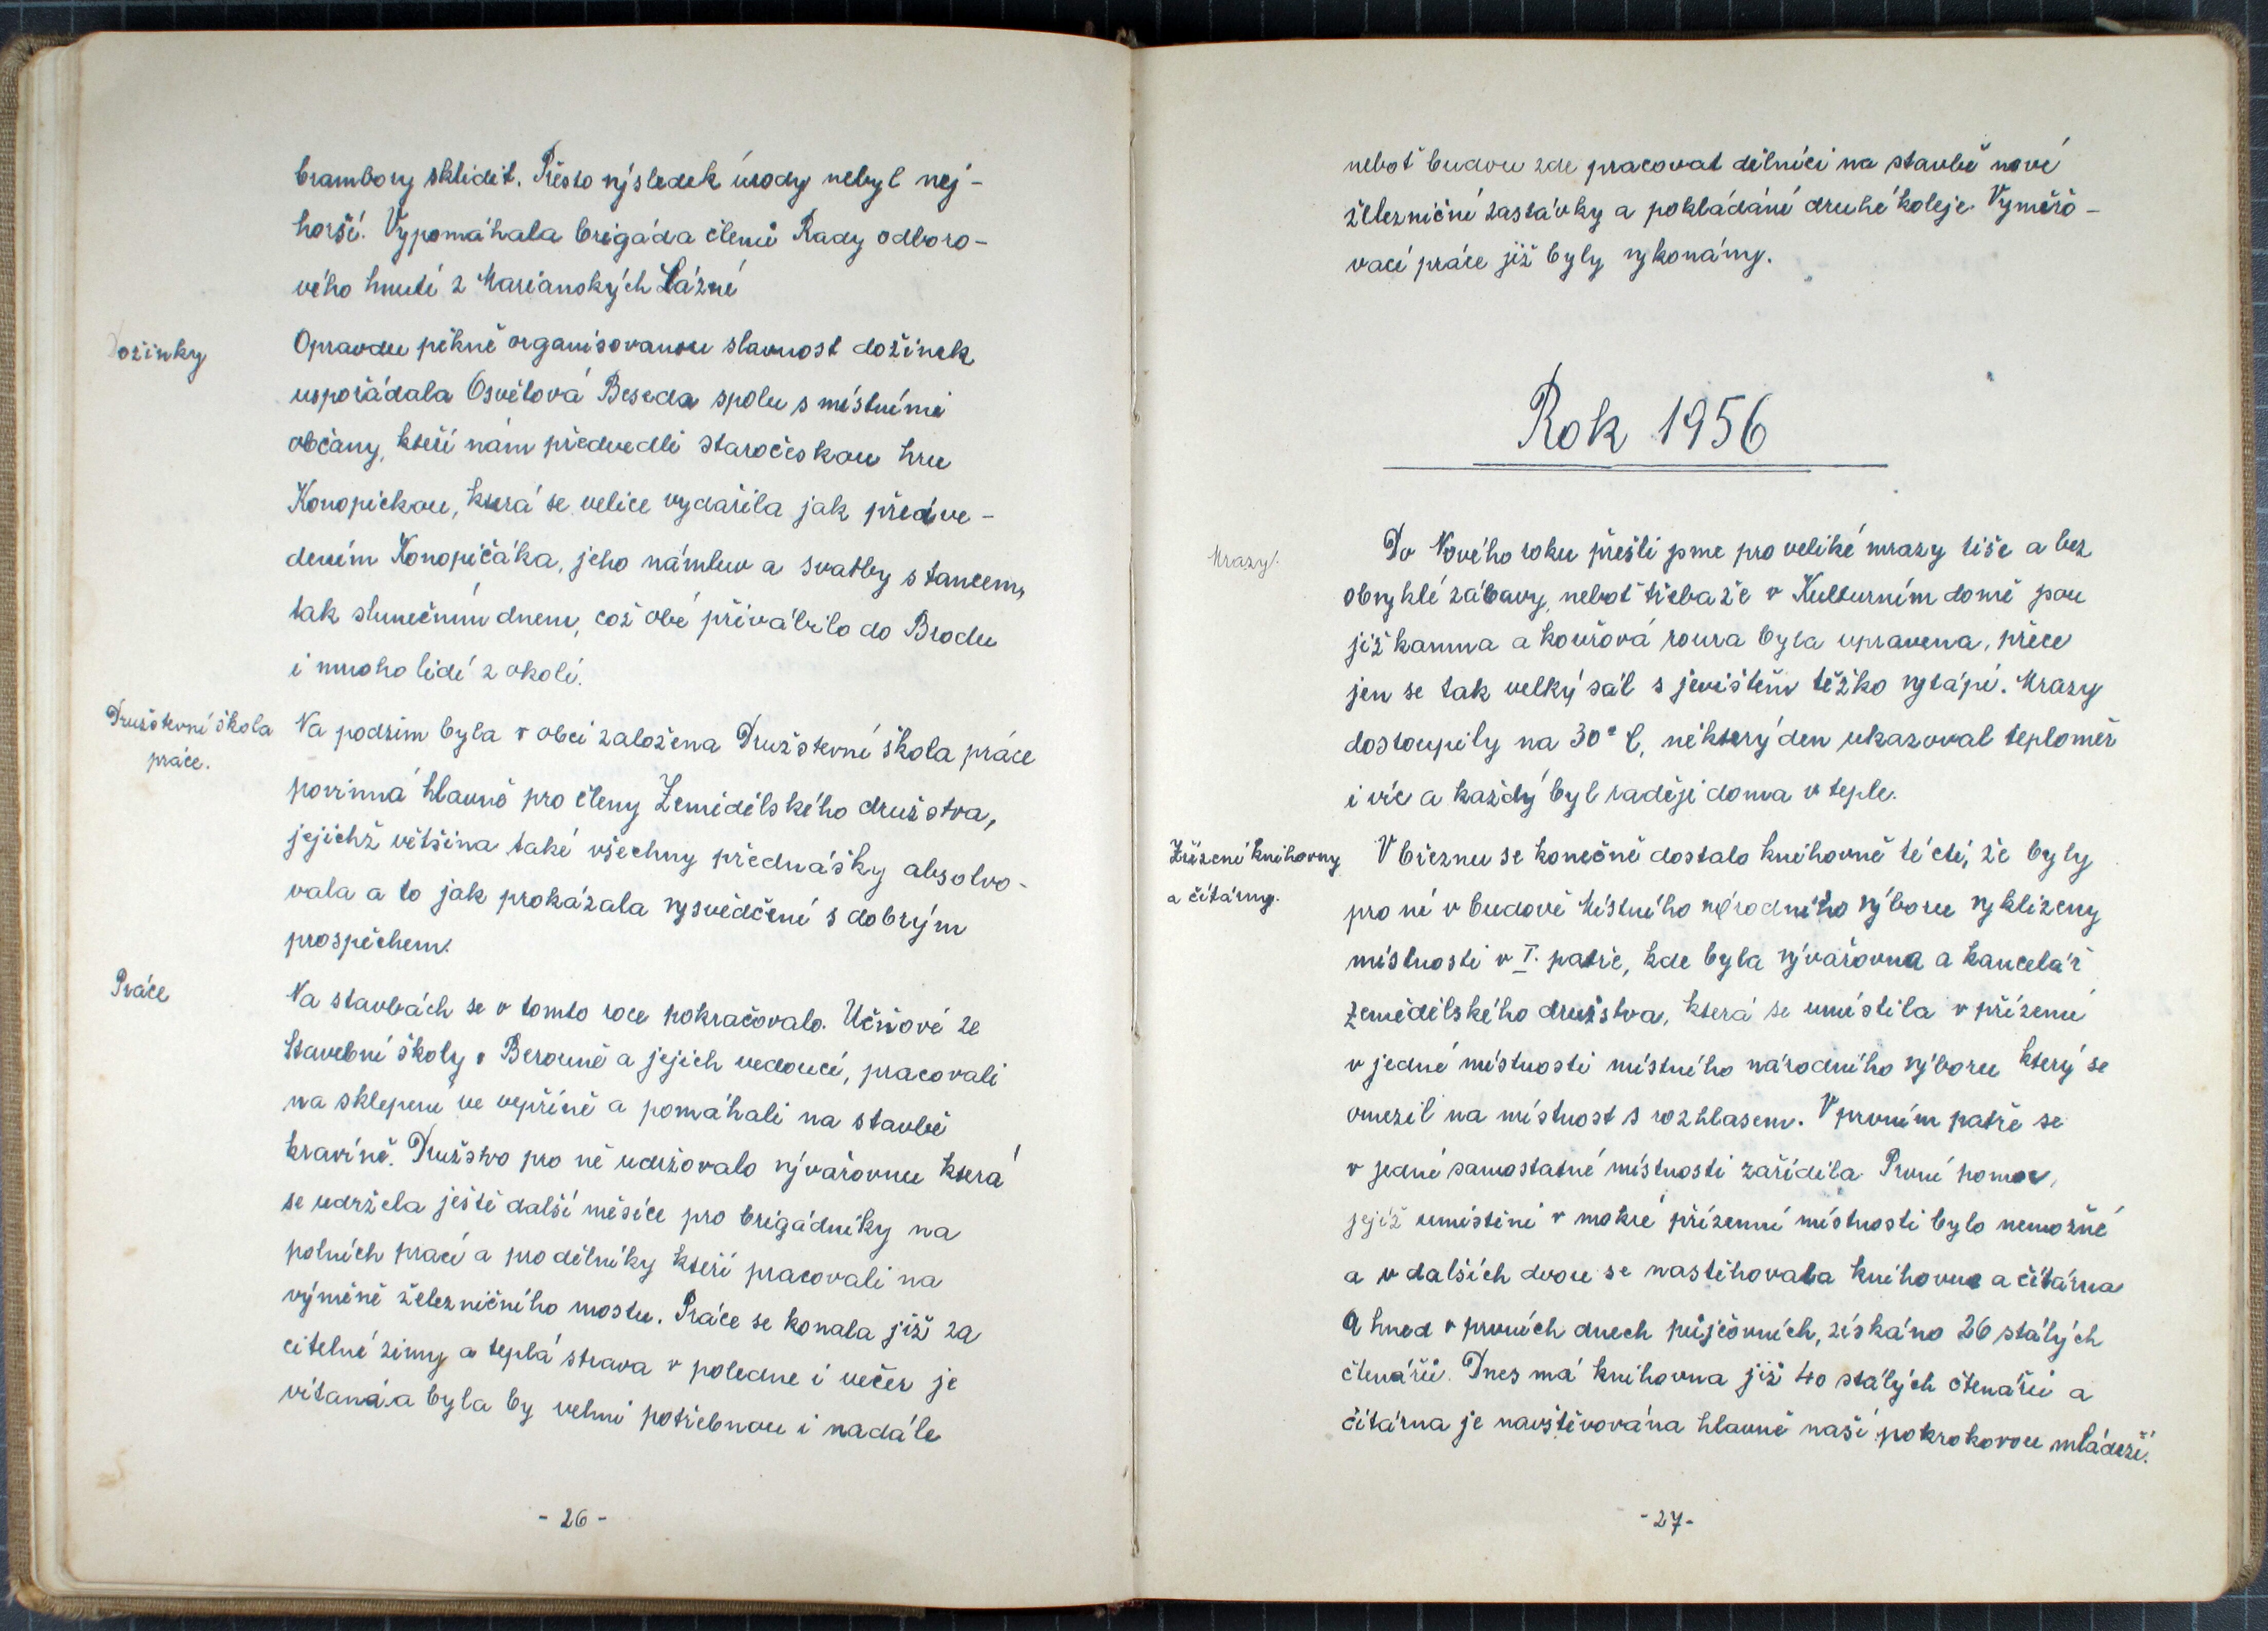 brambory sklidit. Přesto výsledek úrody nebyl nej-
horší. Vypomáhala brigáda členů Rady odboro-
vého hnutí z Mariánských Lázní
Dožinky
Opravdu pěkně organisovanou slavnost dožinek
uspořádala Osvětová Beseda spolu s místními
občany, kteří nám předvedli staročeskou hru
Konopickou, která se velice vydařila jak předve-
dením Konopičáka, jeho námluv a svatby s tancem,
tak slunečním dnem, což obé přivábilo do Brodu
i mnoho lidí z okolí.
Družstevní škola
práce.
Na podzim byla v obci založena Družstevní škola práce
povinná hlavně pro členy Zemědělského družstva,
jejichž většina také všechny přednášky absolvo-
vala a to jak prokázala vysvědčení s dobrým
prospěchem.
Práce
Na stavbách se v tomto roce pokračovalo. Učňové ze
Stavební školy v Berouně a jejich vedoucí, pracovali
na sklepení ve vepříně a pomáhali na stavbě
kravíně. Družstvo pro ně udržovalo vývařovnu která
se udržela ještě další měsíce pro brigádníky na
polních prací a pro dělníky kteří pracovali na
výměně železničního mostu. Práce se konala již za
citelné zimy a teplá strava v poledne i večer je
vítaná a byla by velmi potřebnou i nadále
- 26 -
neboť budou zde pracovat dělníci na stavbě nové
železniční zastávky a pokládání druhé koleje. Vyměřo-
vací práce již byly vykonány.
Rok 1956
Mrazy.
Do Nového roku přešli jsme pro veliké mrazy tiše a bez
obvyklé zábavy, neboť třebaže v Kulturním domě jsou
již kamna a kouřová roura byla upravena, přece
jen se tak velký sál s jevištěm těžko vytápí. Mrazy
dostoupily na 30° C, některý den ukazoval teploměr
i víc a každý byl raději doma v teple.
Zřízení knihovny
a čítárny.
V březnu se konečně dostalo knihovně té cti, že byly
pro ní v budově Místního národního výboru vyklizeny
místnosti v I. patře, kde byla vývařovna a kancelář
Zemědělského družstva, která se umístila v přízemí
v jedné místnosti místního národního výboru který se
omezil na místnost s rozhlasem. V prvním patře se
v jedné samostatné místnosti zařídila První pomoc,
jejíž umístění v mokré přízemní místnosti bylo nemožné
a v dalších dvou se nastěhovala knihovna a čítárna
A hned v prvních dnech půjčovních, získáno 26 stálých
čtenářů. Dnes má knihovna již 40 stálých čtenářů a
čítárna je navštěvována hlavně naší pokrokovou mládeží.
- 27 -